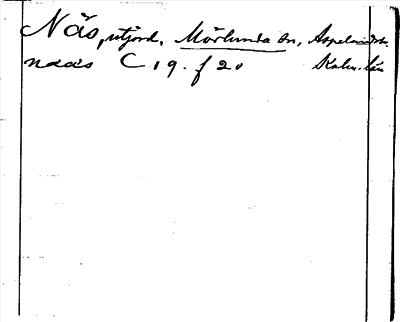 Näs, utjord, Mörlunda sn, Aspelands hd.
naas C 19. f 20 Kalm. län